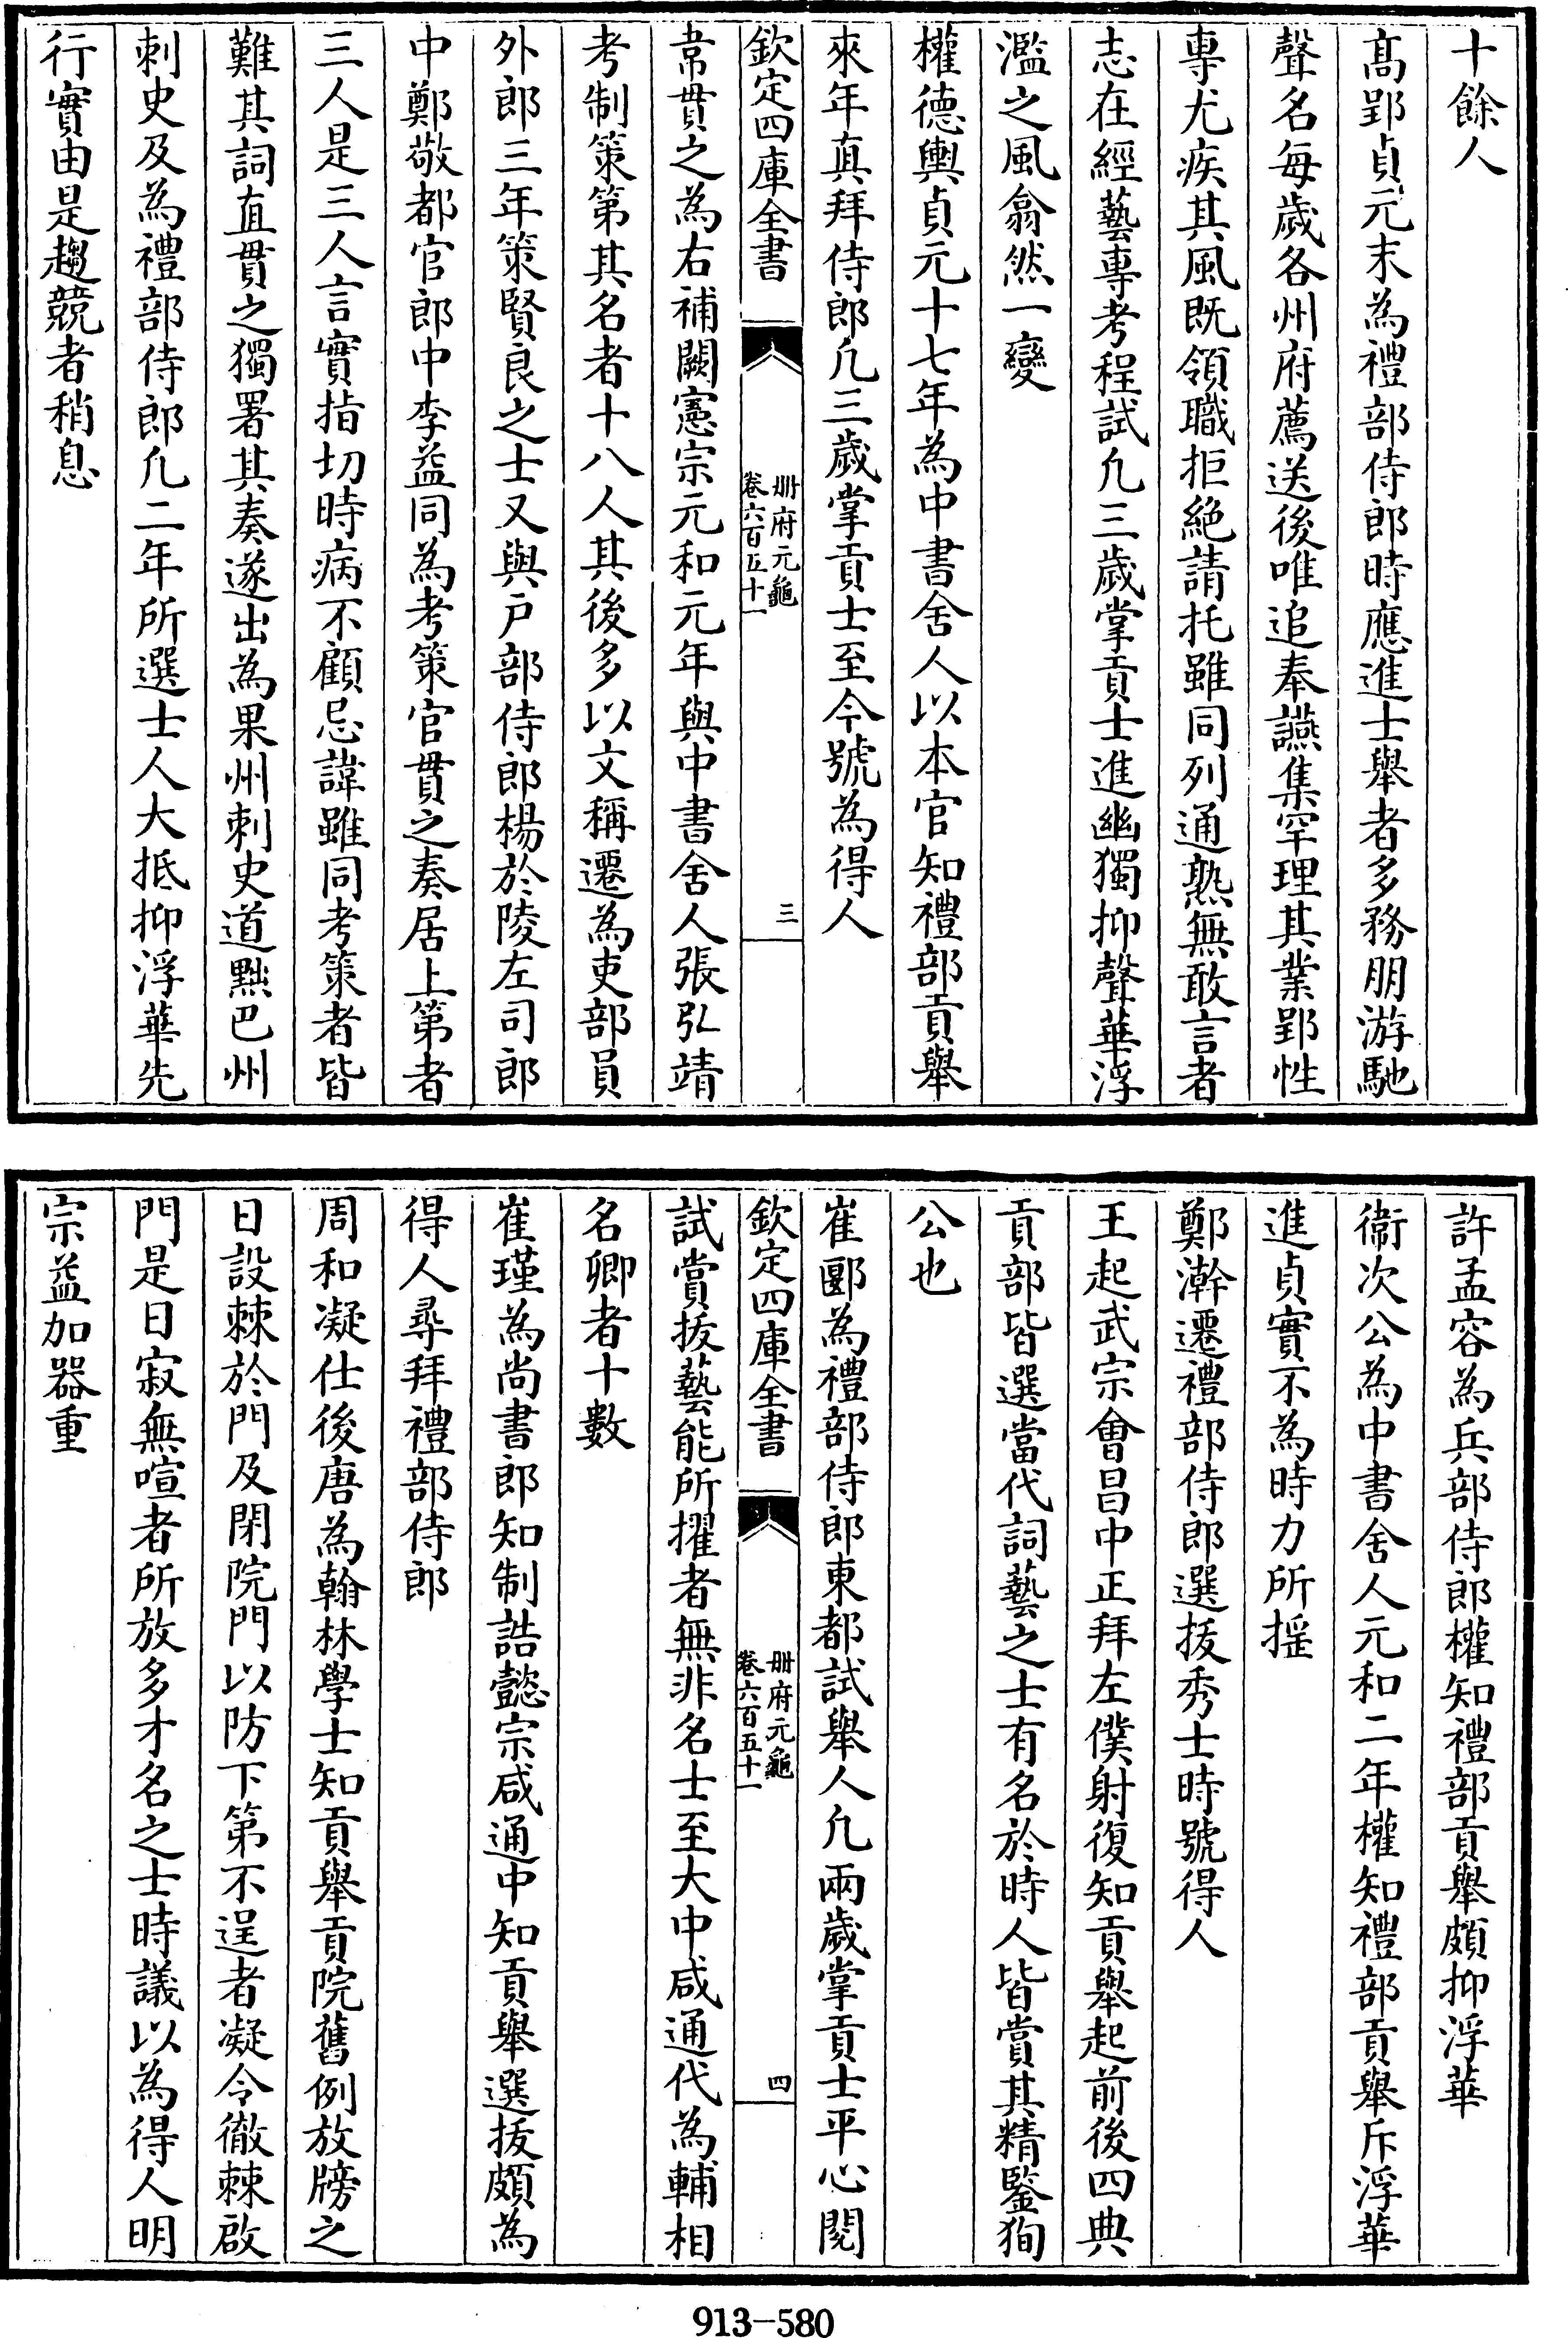 十餘人
髙郢貞元末為禮部侍郎時應進士舉者多務朋游馳
聲名每歲各州府薦送後唯追奉讌集罕理其業郢性
專尤疾其風既領職拒絶請托雖同列通熟無敢言者
志在經藝專考程試凡三歲掌貢士進幽獨抑聲華浮
濫之風翕然一變
權德輿貞元十七年為中書舍人以本官知禮部貢舉
來年真拜侍郎凡三歲掌貢士至今號為得人
欽定四庫全書
冊府元龜
卷六百五十一
三
韋貫之為右補闕憲宗元和元年與中書舍人張弘靖
考制策第其名者十八人其後多以文稱遷為吏部員
外郎三年策賢良之士又與戸部侍郎楊於陵左司郎
中鄭敬都官郎中李益同為考策官貫之奏居上第者
三人是三人言實指切時病不顧忌諱雖同考策者皆
難其詞直貫之獨署其奏遂出為果州刺史道黜巴州
刺史及為禮部侍郎凡二年所選士人大抵抑浮華先
行實由是趨競者稍息
許孟容為兵部侍郎權知禮部貢舉頗抑浮華
衞次公為中書舍人元和二年權知禮部貢舉斥浮華
進貞實不為時力所揺
鄭澣遷禮部侍郎選拔秀士時號得人
王起武宗會昌中正拜左僕射復知貢舉起前後四典
貢部皆選當代詞藝之士有名於時人皆賞其精鑒徇
公也
崔郾為禮部侍郎東都試舉人凡兩歲掌貢士平心閱
欽定四庫全書
冊府元龜
卷六百五十一
四
試賞拔藝能所擢者無非名士至大中咸通代為輔相
名卿者十數
崔瑾為尚書郎知制誥懿宗咸通中知貢舉選拔頗為
得人尋拜禮部侍郎
周和凝仕後唐為翰林學士知貢舉貢院舊例放牓之
日設棘於門及閉院門以防下第不逞者凝令徹棘啟
門是日寂無喧者所放多才名之士時議以為得人明
宗益加器重
913-580